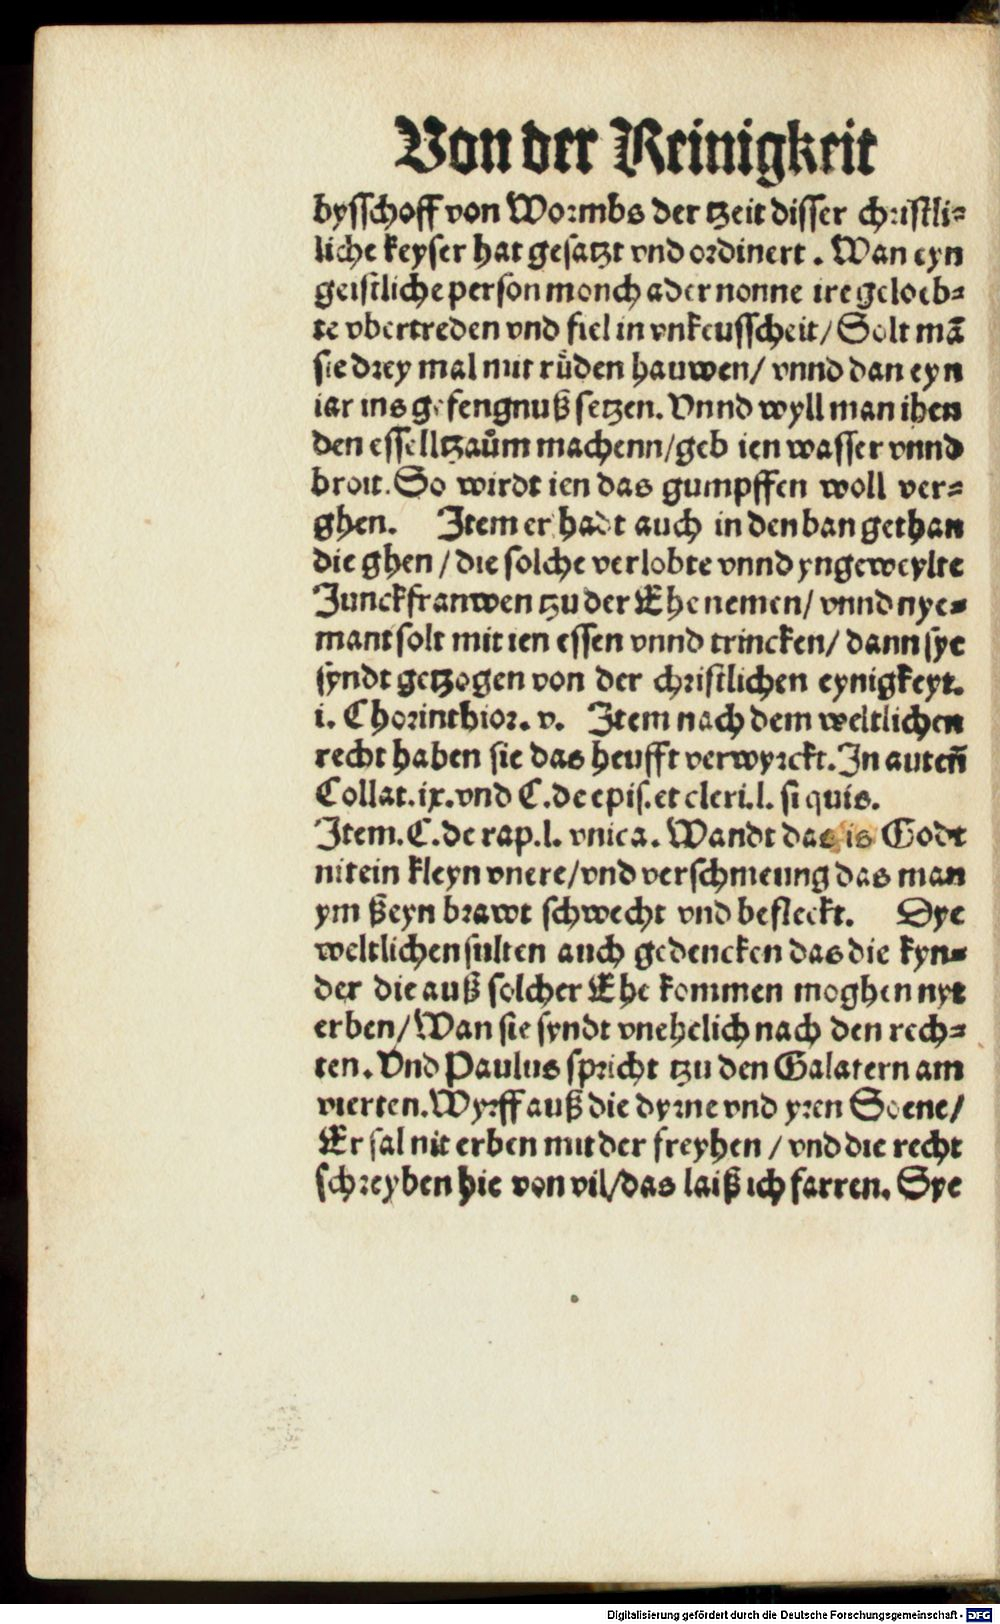 Von der Reinigkeit
bysschoff von Wormbs der tzeit disser christli-
liche keyser hat gesatzt vnd ordinert. Wan eyn
geistliche person monch ader nonne ire geloeb-
te vbertreden vnd fiel in vnkeusscheit/ Solt mā
sie drey mal mit ruͤden hauwen/ vnnd dan eyn
iar ins gefengnuß setzen. Vnnd wyll man ihen
den esselltzauͦm machenn/geb ien wasser vnnd
broit. So wirdt ien das gumpffen woll ver-
ghen. Item er hadt auch in den ban gethan
die ghen/ die solche verlobte vnnd yngeweylte
Junckfranwen tzu der Ehe nemen/ vnnd nye-
mant solt mit ien essen vnnd trincken/ dann sye
syndt getzogen von der christlichen eynigkeyt.
i. Chorinthior. v. Item nach dem weltlichen
recht haben sie das heufft verwyrckt. In auteñ
Collat. ix. vnd C. de epis. et cleri. l. si quis.
Item. C. de rap. l. vnica. Wandt das is Godt
nit ein kleyn vnere/vnd verschmeung das man
ym ßeyn brawt schwecht vnd befleckt. Dye
weltlichen sulten auch gedencken das die kyn-
der die auß solcher Ehe kommen moghen nyt
erben/ Wan sie syndt vnehelich nach den rech-
ten. Vnd Paulus spricht tzu den Galatern am
vierten. Wyrff auß die dyrne vnd yren Soene/
Er sal nit erben mit der freyhen/ vnd die recht
schreyben hie von vil/das laiß ich farren. Sye
Digitalisierung gefördert durch die Deutsche Forschungsgemeinschaft - DFG